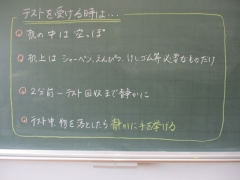 テストを受ける時は…
机の中は 空っぽ
机上は シャーペン、えんぴつ、けしゴム等 必要なものだけ
2分前ーテスト回収まで静かに
テスト中、物を落としたら 静かに手を挙げる